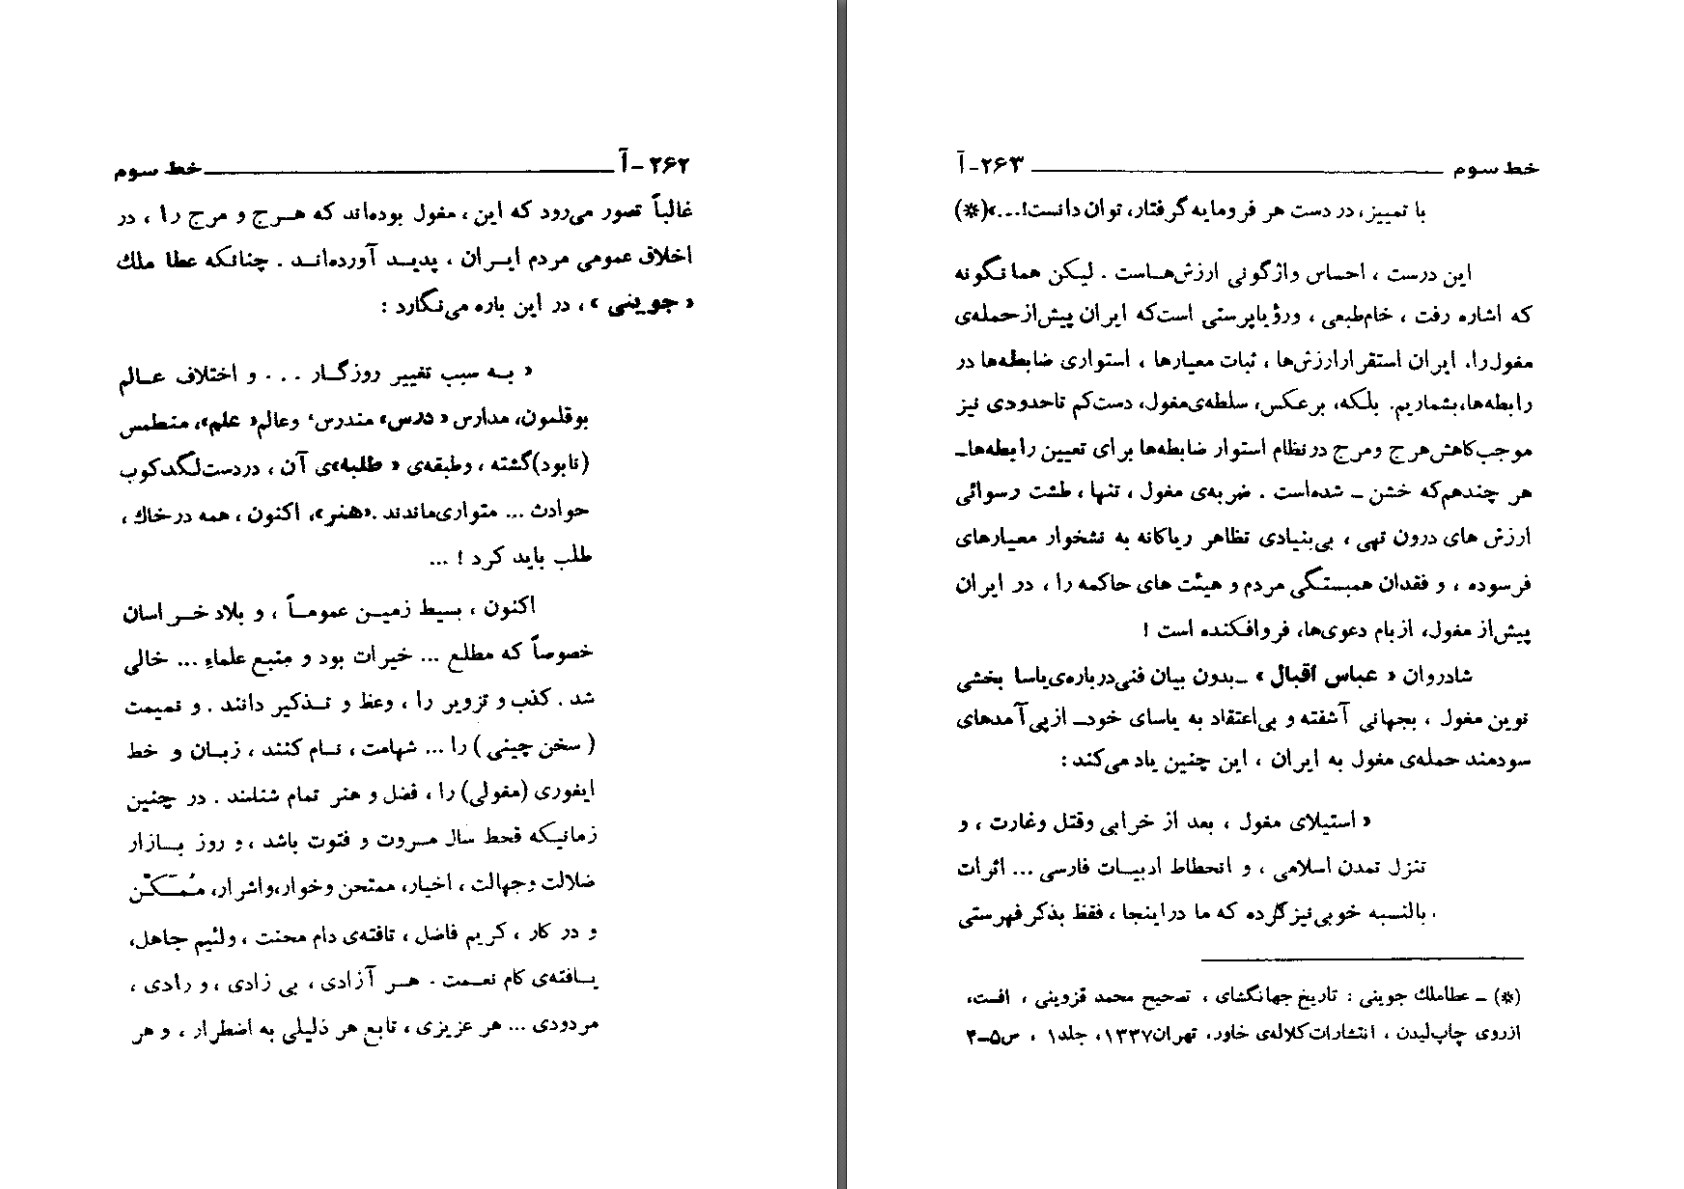 ۲۶۲-آ خط سوم
غالباً تصور می‌رود که این ، مغول بوده‌اند که هرج و مرج را ، در
اخلاق عمومی مردم ایران ، پدید آورده‌اند . چنانکه عطا ملك
« جوینی » ، در این باره می‌نگارد :
« به سبب تغییر روزگار . . . و اختلاف عالم
بوقلمون، مدارس « درس» مندرس، وعالم« علم»، منطمس
(نابود)گشته ، وطبقه‌ی « طلبه»ی آن ، دردست‌لگدکوب
حوادث ... متواری‌ماندند .«هنر»، اکنون ، همه درخاك ،
طلب باید کرد ! ...
اکنون ، بسیط زمین عموماً ، و بلاد خراسان
خصوصاً که مطلع ... خیرات بود و منبع علماءِ ... خالی
شد . کذب و تزویر را ، وعظ و تذکیر دانند . و نمیمت
( سخن چینی ) را ... شهامت ، نام کنند ، زبان و خط
ایغوری (مغولی) را ، فضل و هنر تمام شناسند . در چنین
زمانیکه قحط سال مروت و فتوت باشد ، و روز بازار
ضلالت وجهالت ، اخیار، ممتحن وخوار،واشرار، مُمَکّن
و در کار ، کریم فاضل ، تافته‌ی دام محنت ، ولئیم جاهل،
یافته‌ی کام نعمت . هر آزادی ، بی زادی ، و رادی ،
مردودی ... هر عزیزی ، تابع هر ذلیلی به اضطرار ، و هر
خط سوم ۲۶۳-آ
با تمییز، در دست هر فرومایه گرفتار، توان دانست!...»(*)
این درست ، احساس واژگونی ارزش‌هاست . لیکن همانگونه
که اشاره رفت ، خام‌طبعی ، ورؤیاپرستی است‌که ایران پیش‌از حمله‌ی
مغول‌را، ایران استقرارارزش‌ها ، ثبات معیارها ، استواری ضابطه‌ها در
رابطه‌ها،بشماریم. بلکه، برعکس، سلطه‌ی‌مغول، دست‌کم تاحدودی نیز
موجب‌کاهش‌هرج ومرج درنظام استوار ضابطه‌ها برای تعیین رابطه‌هاـ
هر چندهم‌که خشن ـ شده‌است . ضربه‌ی مغول ، تنها ، طشت رسوائی
ارزش های درون تهی ، بی‌بنیادی تظاهر ریاکانه به نشخوار معیارهای
فرسوده ، و فقدان همبستگی مردم و هیئت های حاکمه را ، در ایران
پیش‌از مغول، ازبام دعوی‌ها، فروافکنده است !
شادروان « عباس اقبال » ـبدون بیان فنی‌درباره‌ی‌یاسا بخشی
نوین مغول ، بجهانی آشفته و بی‌اعتقاد به یاسای خودـ ازپی‌آمدهای
سودمند حمله‌ی مغول به ایران ، این چنین یاد می‌کند :
« استیلای مغول ، بعد از خرابی وقتل وغارت ، و
تنزل تمدن اسلامی ، و انحطاط ادبیات فارسی ... اثرات
بالنسبه خوبی‌نیزکرده که ما دراینجا ، فقط بذکر فهرستی
(*) ـ عطاملك جوینی : تاریخ جهانگشای ، تصحیح محمد قزوینی ، افست،
ازروی چاپ‌لیدن ، انتشارات‌کلاله‌ی خاور، تهران۱۳۳۷، جلد۱ ، ص۵ـ۴